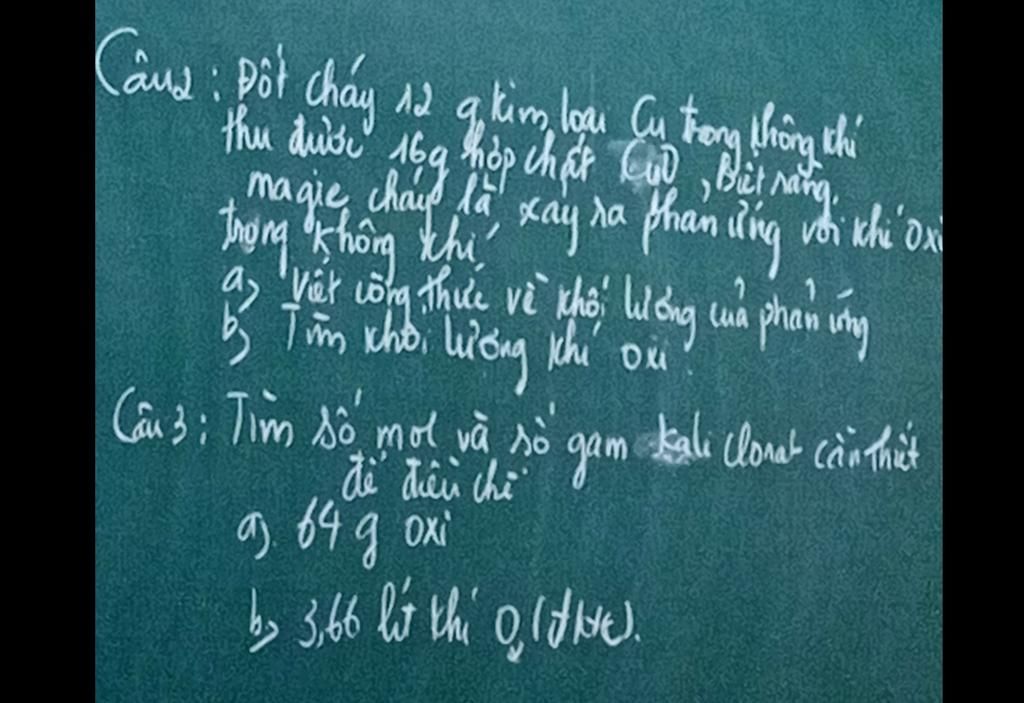 Câu 2: Đốt cháy 12 g kim loại Cu trong không khí
thu được 16g hợp chất CuO, Biết rằng,
magie cháy là xảy ra phản ứng với khí oxi
trong không khí
a) Viết công thức về khối lượng của phản ứng
b) Tìm khối lượng khí oxi.
Câu 3: Tìm số mol và số gam kali clorat cần thiết
để điều chế
a). 64 g oxi
b) 3,66 lít khí O₂ (đktc).